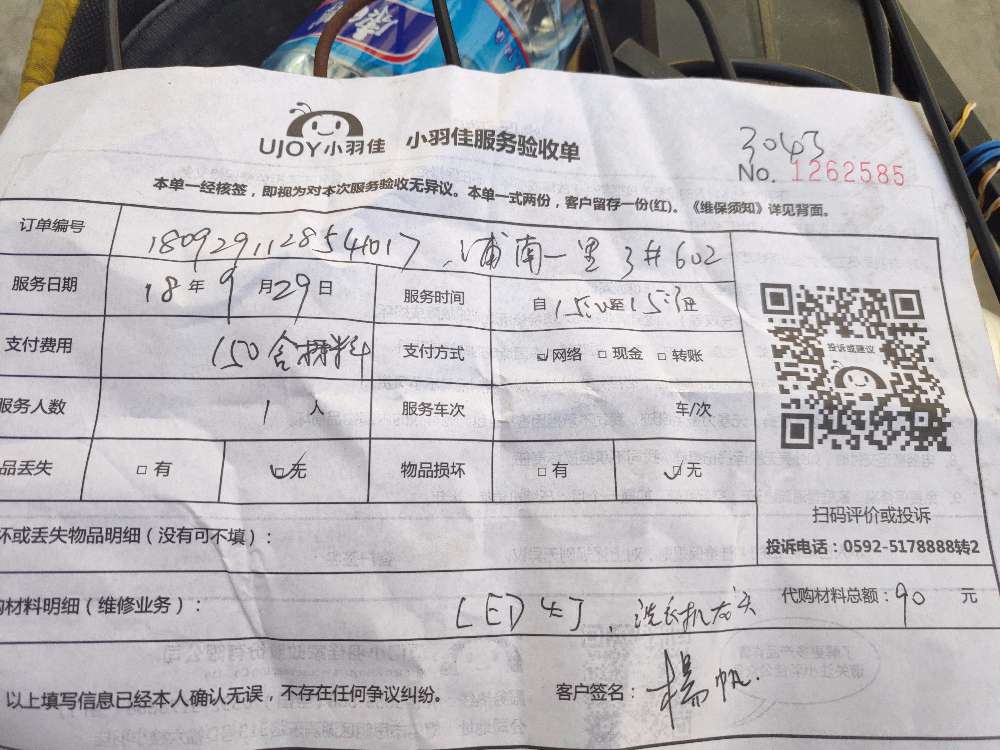 UJOY小羽佳 小羽佳服务验收单
3043
No. 1262585
本单一经核签，即视为对本次服务验收无异议。本单一式两份，客户留存一份(红)。《维保须知》详见背面。
订单编号 1809291128541017 浦南一里 3# 602
服务日期 18 年 9 月 29 日 服务时间 自 至
支付费用 150含材料 支付方式 网络 现金 转账
服务人数 1 人 服务车次 车/次
品丢失 有 无 物品损坏 有 无
投诉或建议
扫码评价或投诉
投诉电话：0592-5178888转2
坏或丢失物品明细（没有可不填）：
购材料明细（维修业务）： LED灯、洗衣机龙头 代购材料总额：90 元
以上填写信息已经本人确认无误，不存在任何争议纠纷。 客户签名：杨帆